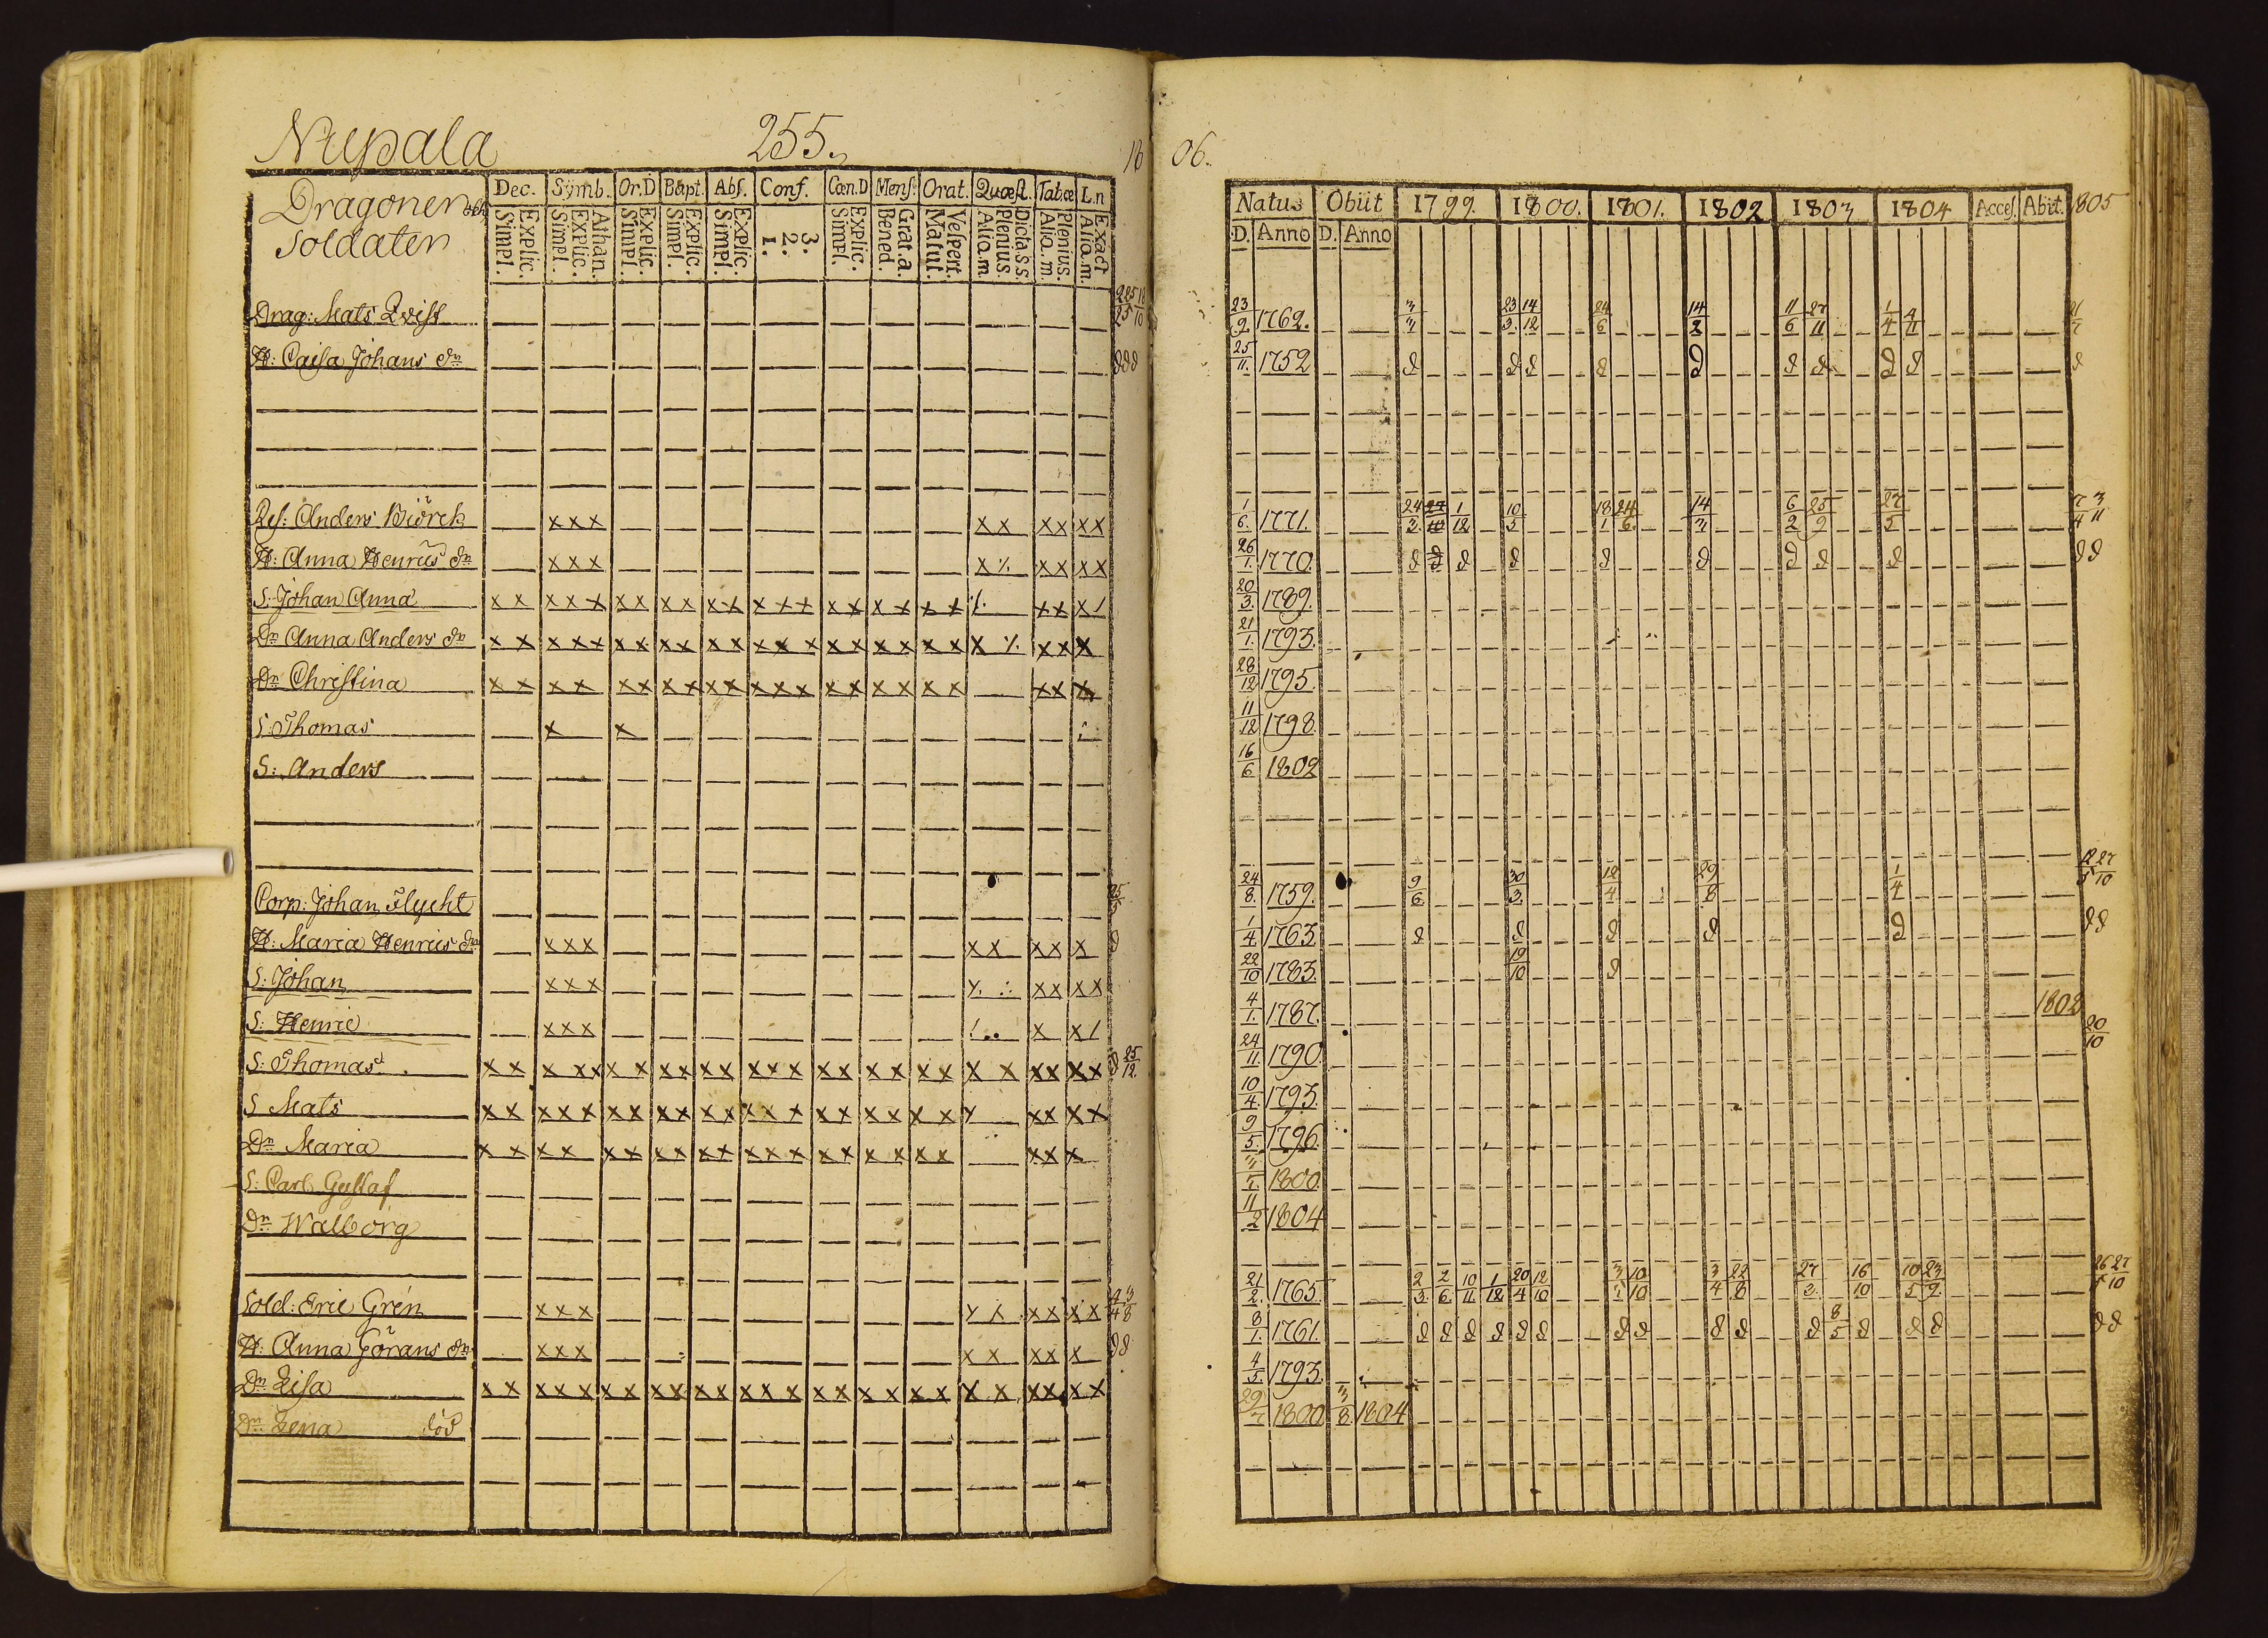 Nupala 255.
18 06.
Dragoner och
Soldater
Dec. Symb. Or.D Bapt. Abs. Conf. Cœn.D Mens. Orat. Quæst. Tab.œ L.n
Explic. Simpl. Athan. Explic. Simpl. Explic. Simpl. Explic. Simpl. Explic. Simpl. 3. 2. 1. Explic. Simpl. Grat.a. Bened. Vespert. Matut. Dicta.s.s. Plenius. Alio.m. Plenius. Alio.m. Exact Alio.m.
Natus Obiit 1799. 1800. 1801. 1802 1803 1804 Acces. Abiit. 1805
D. Anno D. Anno
Drag: Mats Qvist 23/9. 1762. 23/3. 14/12 24/6 14/2 11/6 27/11 1/4 4/11
H: Caisa Johans dr 25/11. 1752
Ref: Anders Biörck xxx xx xx xx 1/6. 1771. 24/3. 1/12 10/5 18/1 24/6. 14/3 6/2 25/9 27/5 7/4 3/11
H: Anna Henrics dr xxx x٪ xx xx 26/1. 1770.
S: Johan Anna x x x x x x x x x x x x x x x x x x x x x x x x x / 20/3. 1789.
Dr Anna Anders dr x x x x x x x x x x x x x x x x x x x x x ٪ x x x 21/1. 1793.
Dr Christina x x x x x x x x x x x x x x x x x x x x x x x 28/12 1795.
S: Thomas x x 11/12 1798.
S: Anders 16/6 1802
Corp: Johan Flycht 25/5 24/8. 1759. 9/6 30/3. 12/4 29/8 1/4 12/5 27/10
H: Maria Henrics dr xxx x x x x x 1/4 1763.
S: Johan xxx xx xx 22/10 1783. 19/10
S: Henric xxx x x / 4/1. 1787. 1802
S: Thomas x x x x x x x x x x x x x x x x x x x x x x x x x x 25/12 24/11. 1790. 20/10
S Mats x x x x x x x x x x x x x x x x x x x x x x x x x 10/4. 1793.
Dr Maria x x x x x x x x x x x x x x x x x x x x x x 9/5. 1796.
S: Carl Gustaf 1800.
Dr Walborg 11/2 1804
Sold: Eric Grén xxx x x xx xx 4/4 3/8 21/2. 1765. 2/3. 2/6. 10/11 1/12 20/4 12/10 10/10 3/4 22/8 27/3. 16/10 10/5 23/9. 26/5 27/10
H: Anna Görans dr xxx x x xx x 8/1. 1761. 8/5
Dr Lisa x x x x x x x x x x x x x x x x x x x x x x x x x x 4/5. 1793.
Dr Lena död 29/7 1800 3/8. 1804